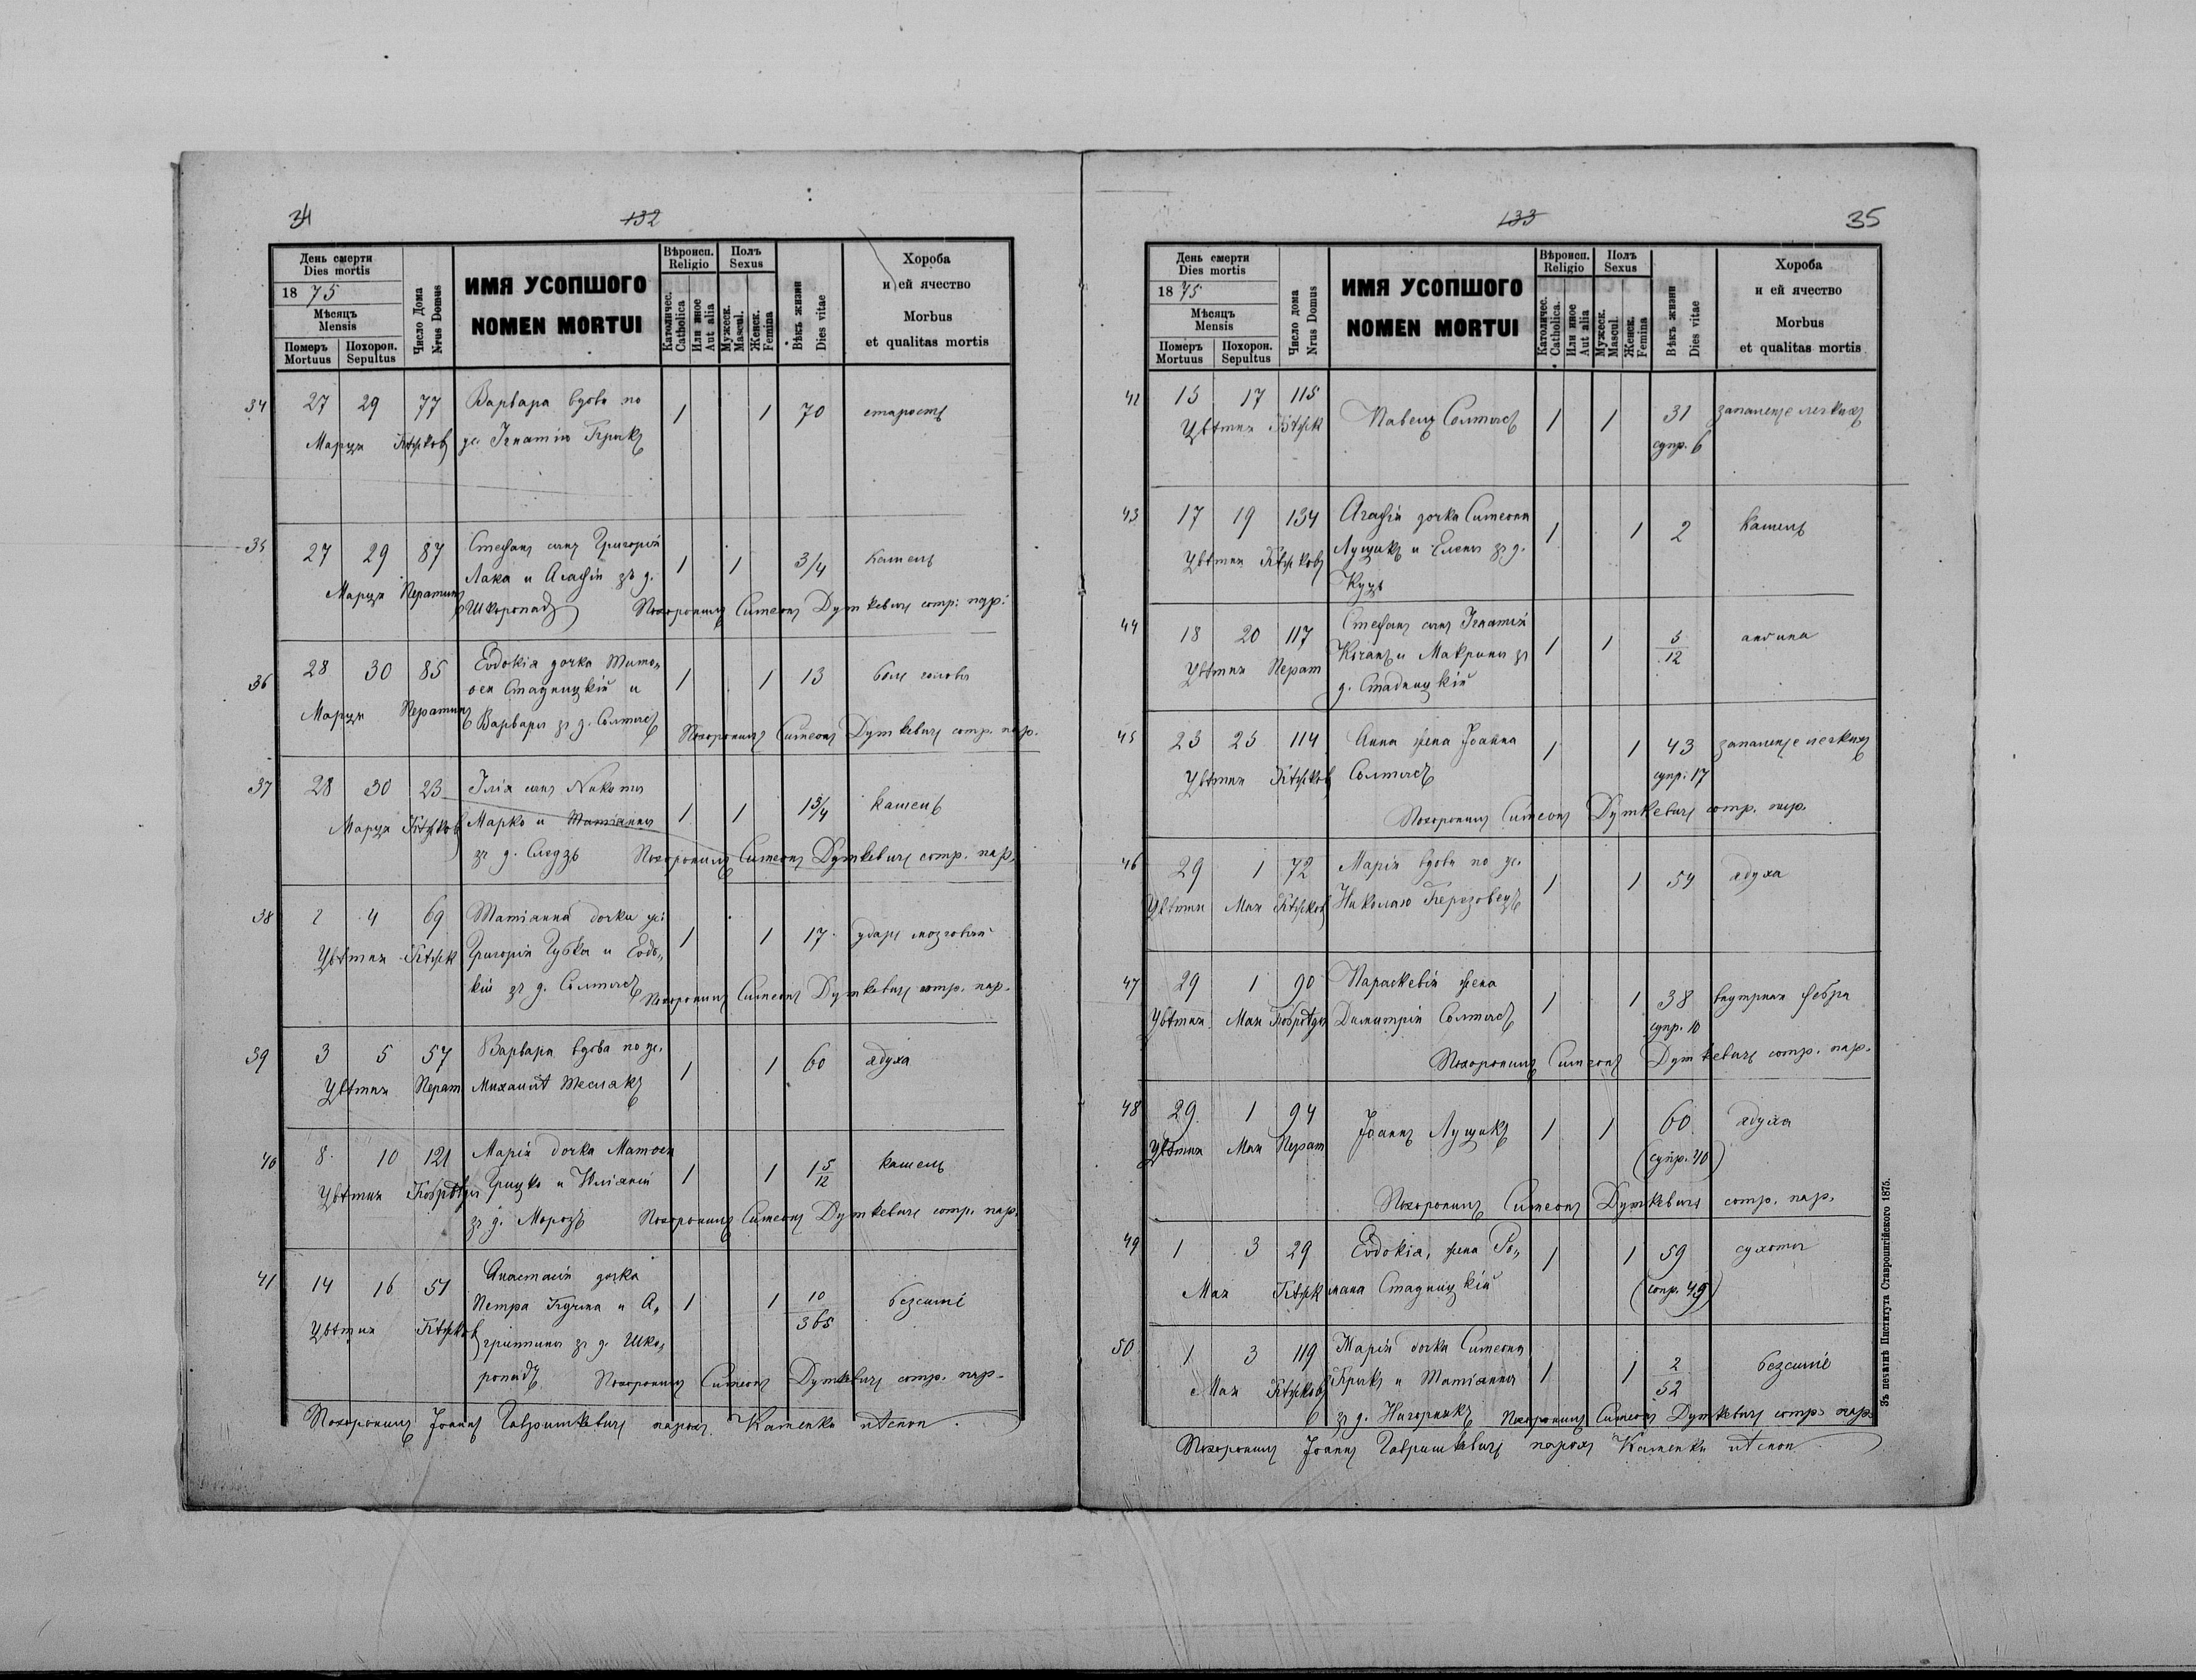 34
132
День смерти
Dies mortis
18 75
Мѣсяцъ
Mensis
Померъ
Mortuus
Похорон.
Sepultus
Число Дома
Nrus Domus
ИМЯ УСОПШОГО
NOMEN MORTUI
Вѣроисп.
Religio
Католичес.
Catholica
Или иное
Aut alia
Полъ
Sexus
Мужеск.
Mascul.
Женск.
Femina
Вѣкъ жизни
Dies vitae
Хороба
и ей ячество
Morbus
et qualitas mortis
34 27 29 77 Варвара вдова по 1 1 70 старость
Марця ус. Игнатію
35 27 29 87 Стефанъ сынъ Григорія 1 1 3/4 кашель
Марця Ператинъ Лака и Агафіи зъ д.
Шкоропадъ Похоронилъ Симеонъ Дуткевичъ сотр: пар:
36 28 30 85 Евдокія дочка Тимо„ 1 1 13 боль головы
Марця Ператинъ ѳея Стадницкій и
Варвары зъ д. Солтысъ Похоронилъ Симеонъ Дуткевичъ сотр. пар.
37 28 30 23 Илія сынъ Никиты 1 1 1 3/4 кашель
Марця Марко и Татіанны
зъ д. Следзь Похоронилъ Симеонъ Дуткевичъ сотр. пар.
38 2 4 69 Татіанна дочка ус: 1 1 17 ударъ мозговый
Цвѣтня Григорія Губка и Евдо„
кіи зъ д. Солтысъ Похоронилъ Симеонъ Дуткевичъ сотр. пар.
39 3 5 57 Варвара вдова по ус. 1 1 60 ядуха
Цвѣтня Перат Михаилѣ Теслякъ
40 8 10 121 Марія дочка Матѳея 1 1 1 5/12 кашель
Цвѣтня Грицко и Юліянiи
зъ д. Морозъ Похоронилъ Симеонъ Дуткевичъ сотр. пар.
41 14 16 51 Анастасія дочка 1 1 10/365 безсиліе
Цвѣтня Петра Кучма и А„
гриппины зъ д. Шко„
ропадъ Похоронилъ Симеонъ Дуткевичъ сотр. пар.
Похоронилъ Іоаннъ Гавришкевичъ парохъ Каменки лѣсной
133
35
День смерти
Dies mortis
18 75
Мѣсяцъ
Mensis
Померъ
Mortuus
Похорон.
Sepultus
Число дома
Nrus Domus
ИМЯ УСОПШОГО
NOMEN MORTUI
Вѣроисп.
Religio
Католичес.
Catholica.
Или иное
Aut alia
Полъ
Sexus
Мужеск.
Mascul.
Женск.
Femina
Вѣкъ жизни
Dies vitae
Хороба
и ей ячество
Morbus
et qualitas mortis
42 15 17 115 Павелъ Солтысъ 1 1 31 запаленіе легкихъ
Цвѣтня супр. 6
43 17 19 134 Агафія дочка Симеона 1 1 2 кашель
Цвѣтня Лущакъ и Елены зъ д.
Куць
44 18 20 117 Стефанъ сынъ Игнатія 1 1 5/12 ангина
Цвѣтня Перат и Макрины зъ
д. Стадницкій
45 23 25 114 Анна жена Іоанна 1 1 43 запаленіе легкихъ
Цвѣтня Солтысъ супр: 17
Похоронилъ Симеонъ Дуткевичъ сотр. пар.
46 29 1 72 Марія вдова по ус. 1 1 54 ядуха
Цвѣтня Мая Николаю Березовецъ
47 29 1 90 Параскевія жена 1 1 38 внутрная febra
Цвѣтня Мая Димитрія Солтысъ супр. 10
Похоронилъ Симеонъ Дуткевичъ сотр. пар.
48 29 1 94 Іоаннъ Лущакъ 1 1 60 ядуха
Цвѣтня Мая Перат (супр. 40)
Похоронилъ Симеонъ Дуткевичъ сотр. пар.
49 1 3 29 Евдокія, жена Ро„ 1 1 59 сухоты
Мая мана Стадницкій
50 1 3 119 Марія дочка Симеона 1 1 2/52 безсиліе
Мая и Татіанны
зъ д. Нагорнякъ Похоронилъ Симеонъ Дуткевичъ сотр. пар.
Похоронилъ Іоаннъ Гавришкевичъ парохъ Каменки лѣсной
Зъ печатнѣ Института Ставропигійского 1875.